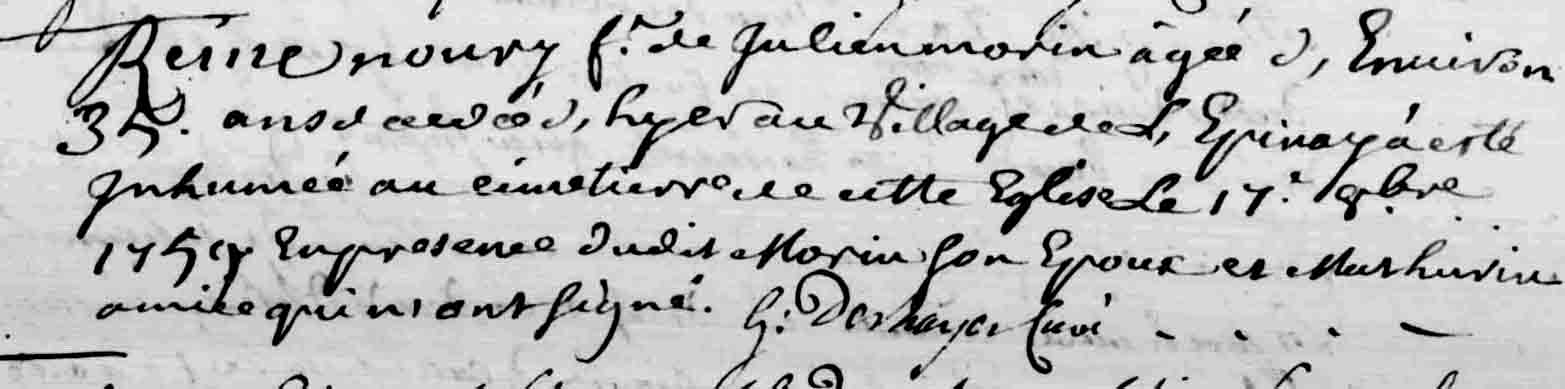 Reine noury f.e de Julien morin âgéé d, Environ
35. ans decedéé d, hyer au Village de L, Epinay à esté
Jnhumée au cimetierre de cette Eglise Le 17.e 8.bre
1759 En presence dudit Morin son Epoux et Mathurin
amice qui n'ont signé. G. Deshayes Curé